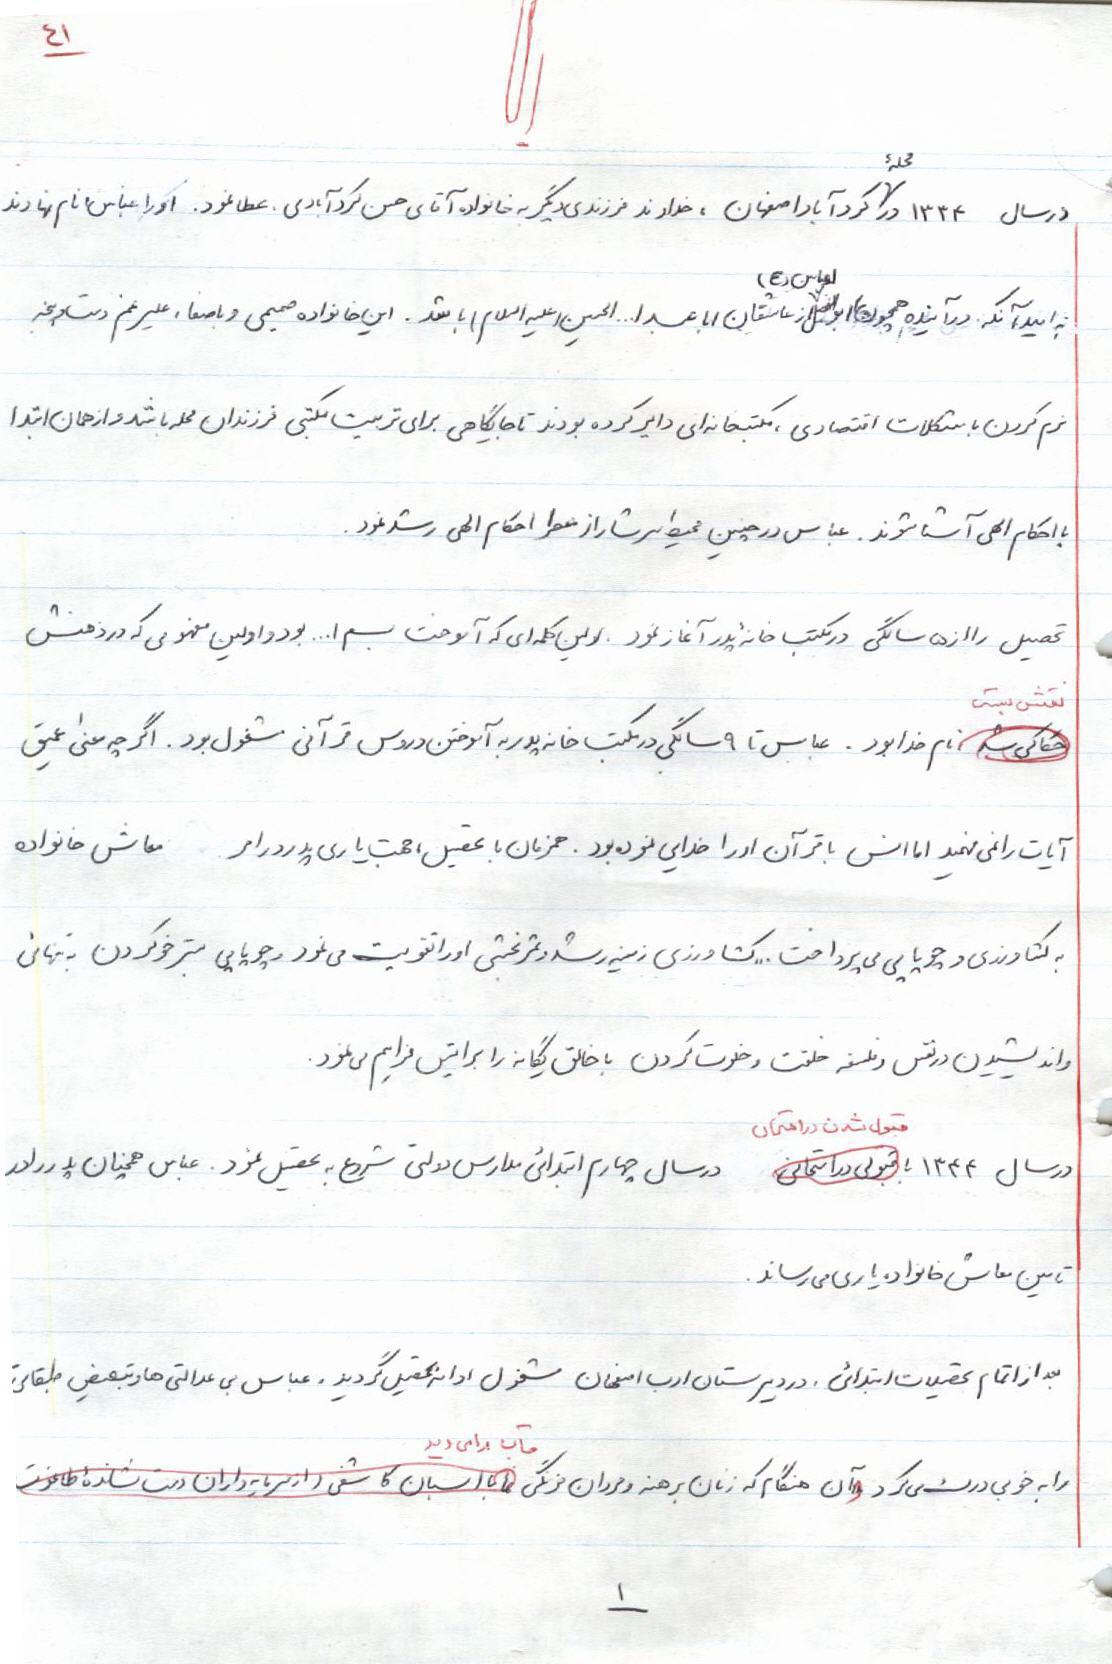 ٤١
محلهٔ
در سال ۱۳۳۴ در کردآباد اصفهان ، خداوند فرزندی دیگر به خانواده آقای حسن کردآبادی ، عطا نمود. او را عباس نام نهادند
العباس (ع)
به امید آنکه در آینده همچون ابوالفضل از عاشقان ابا عبدا... الحسین (علیه السلام) باشد . این خانواده صمیمی و باصفا ، علیرغم دست و پنجه
نرم کردن با مشکلات اقتصادی ، مکتبخانه‌ای دایر کرده بودند تا جایگاهی برای تربیت مکتبی فرزندان محله باشد و از همان ابتدا
با احکام الهی آشنا شوند . عباس در چنین محیط سرشار از عطر احکام الهی رشد نمود .
تحصیل را از ۵ سالگی در مکتب خانهٔ پدر آغاز نمود . اولین کلمه‌ای که آموخت بسم ا... بود و اولین مفهومی که در ذهنش
نقش بست
حکاکی شد نام خدا بود . عباس تا ۹ سالگی در مکتب خانه پدر به آموختن دروس قرآنی مشغول بود . اگر چه معنی عمیق
آیات را نمی فهمید اما انس با قرآن او را خدایی نموده بود . همزمان با تحصیل ، جهت یاری پدر در امر معاش خانواده
به کشاورزی و چوپانی می پرداخت ... کشاورزی زمینه رشد و ثمربخشی او را تقویت می نمود و چوپانی بستر خو کردن به تنهائی
و اندیشیدن در نفس و فلسفه خلقت و خلوت کردن با خالق یگانه را برایش فراهم می نمود .
قبول شدن در امتحان
در سال ۱۳۴۴ با قبولی در امتحانی در سال چهارم ابتدائی مدارس دولتی شروع به تحصیل نمود . عباس همچنان پدر را در
تامین معاش خانواده یاری می رساند .
بعد از اتمام تحصیلات ابتدائی ، در دبیرستان ادب اصفهان مشغول ادامهٔ تحصیل گردید . عباس بی عدالتی ها و تبعیض طبقاتی
را به خوبی درک می کرد و آن هنگام که زنان برهنه و مردان فرنگی را با اسبان کاشفی از سرمایه داران دست نشاندهٔ طاغوت
۱